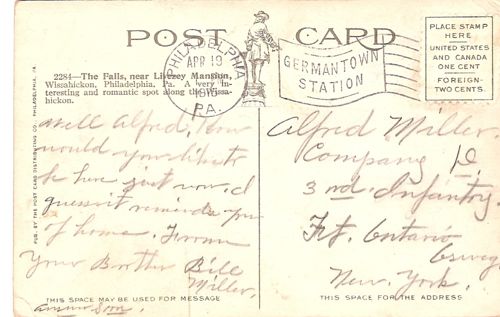 POST CARD
PLACE STAMP
HERE
UNITED STATES
AND CANADA
ONE CENT
FOREIGN-
TWO CENTS.
PHILADELPHIA
APR 19
PA.
GERMANTOWN
STATION
2284—The Falls, near Livezey Mansion,
Wissahickon, Philadelphia, Pa. A very in-
teresting and romantic spot along the Wissa-
hickon.
PUB. BY THE POST CARD DISTRIBUTING CO., PHILADELPHIA, PA.
Well Alfred, How
would you like to
be here just now. I
guess it reminds you
of home. From
Your Brother Bill
Miller.
answer soon.
THIS SPACE MAY BE USED FOR MESSAGE
Alfred Miller
Company D.
3rd. Infantry.
Ft. Ontario
Oswego
New York.
THIS SPACE IS FOR THE ADDRESS